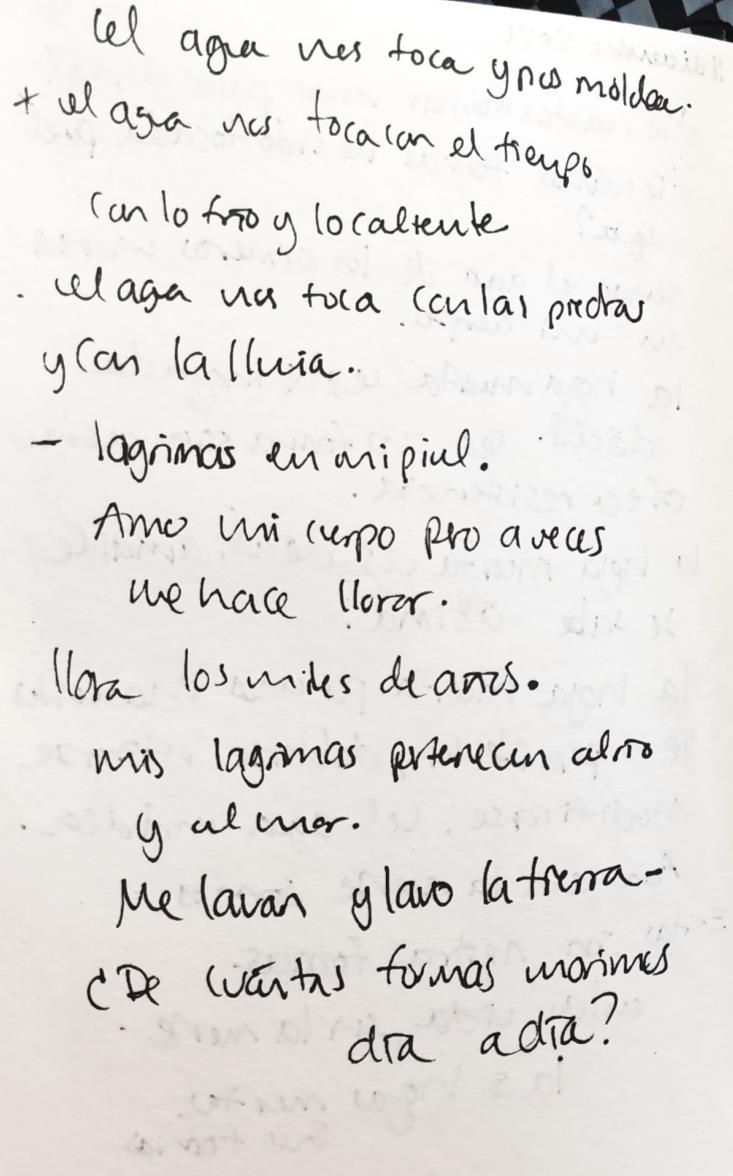 el agua nos toca y nos moldea.
* el agua nos toca con el tiempo
con lo frío y lo caliente
. el agua nos toca con las piedras
y con la lluvia.
- lagrimas en mi piel.
Amo mi cuerpo pero a veces
me hace llorar.
. llora los miles de años.
mis lagrimas pertenecen al río
y al mar.
Me lavan y lavo la tierra-.
¿De cuántas formas morimos
día a día?